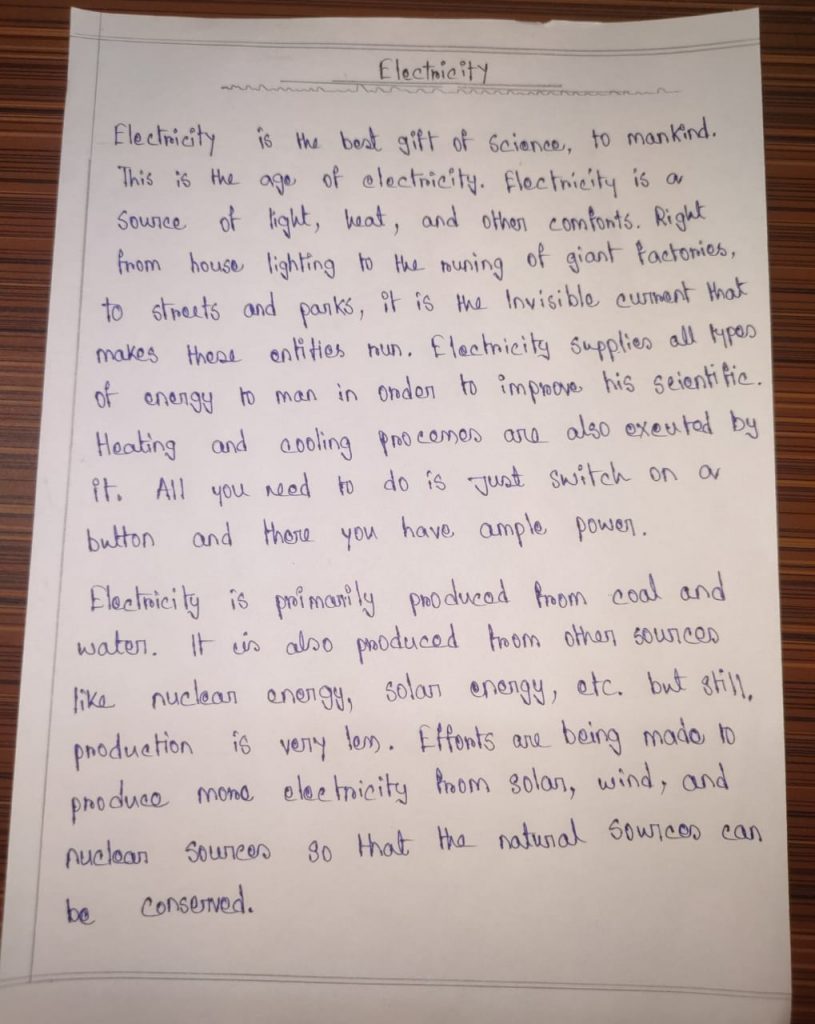 Electricity
Electricity is the best gift of science, to mankind.
This is the age of electricity. Electricity is a
source of light, heat, and other comforts. Right
from house lighting to the runing of giant factories,
to streets and parks, it is the Invisible current that
makes these entities run. Electricity supplies all types
of energy to man in order to improve his scientific.
Heating and cooling processes are also exeuted by
it. All you need to do is just switch on a
button and there you have ample power.
Electricity is primarily produced from coal and
water. It is also produced from other sources
like nuclear energy, solar energy, etc. but still,
production is very less. Efforts are being made to
produce more electricity from solar, wind, and
nuclear sources so that the natural sources can
be conserved.